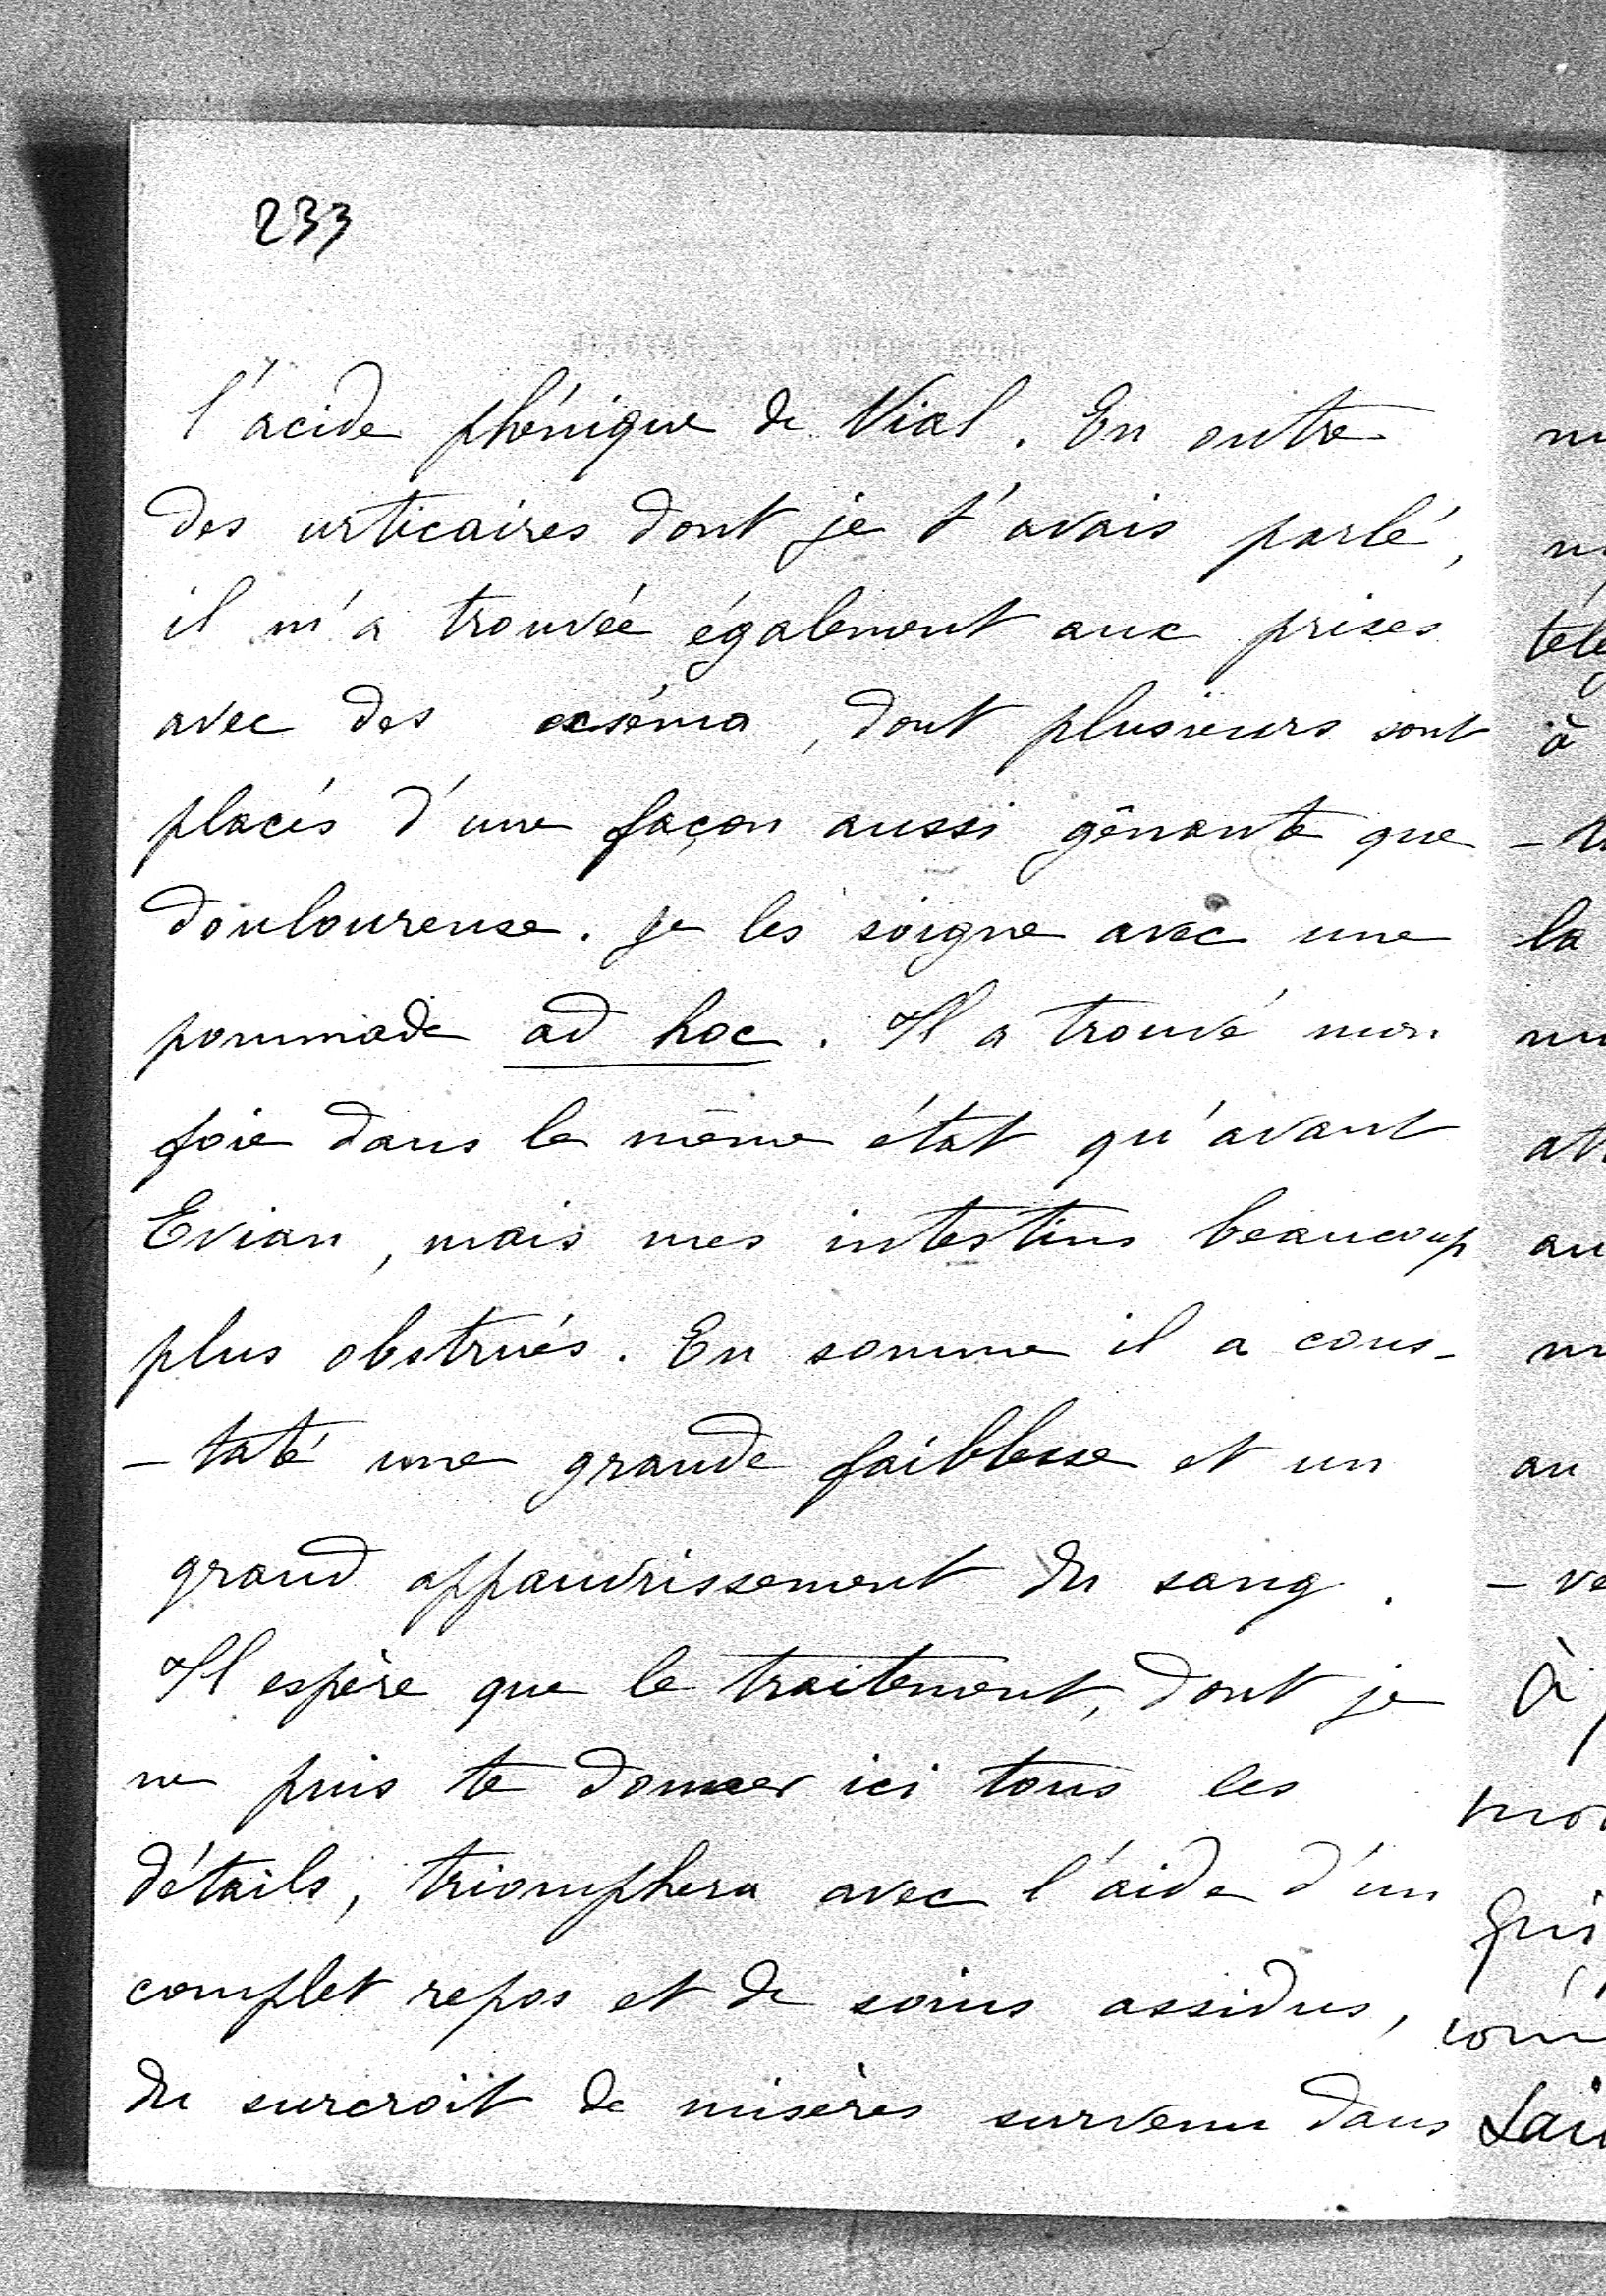 233
l'acide phénique de Vial. En outre
des urticaires dont je t'avais parlé,
il m'a trouvée également aux prises
avec des exséma, dont plusieurs sont
placés d'une façon aussi gênante que
douloureuse. Je les soigne avec une
pommade ad hoc. Il a trouvé mon
foie dans le même état qu'avant
Evian, mais mes intestins beaucoup
plus obstrués. En somme il a cons-
-taté une grande faiblesse et un
grand appauvrissement du sang.
Il espère que le traitement, dont je
ne puis te donner ici tous les
détails, triomphera avec l'aide d'un
complet repos et de soins assidus,
du surcroit de misères survenu dans